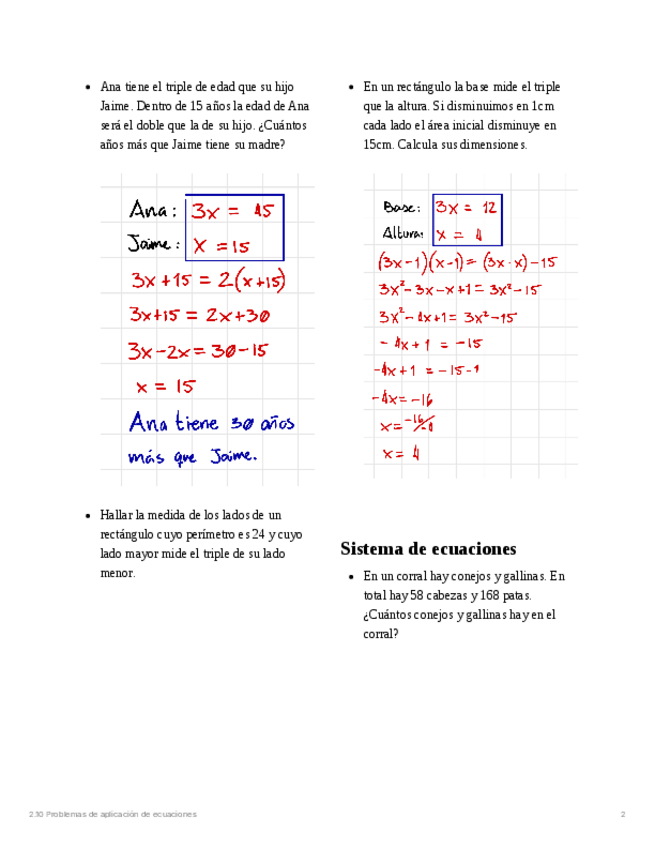 • Ana tiene el triple de edad que su hijo
Jaime. Dentro de 15 años la edad de Ana
será el doble que la de su hijo. ¿Cuántos
años más que Jaime tiene su madre?
Ana: 3x = 45
Jaime: x = 15
3x + 15 = 2(x+15)
3x+15 = 2x+30
3x-2x = 30-15
x = 15
Ana tiene 30 años
más que Jaime.
• Hallar la medida de los lados de un
rectángulo cuyo perímetro es 24 y cuyo
lado mayor mide el triple de su lado
menor.
• En un rectángulo la base mide el triple
que la altura. Si disminuimos en 1cm
cada lado el área inicial disminuye en
15cm. Calcula sus dimensiones.
Base: 3x = 12
Altura: x = 4
(3x-1)(x-1) = (3x·x)-15
3x²-3x-x+1 = 3x²-15
3x²-4x+1 = 3x²-15
-4x+1 = -15
-4x+1 = -15-1
-4x = -16
x = -16/-4
x = 4
Sistema de ecuaciones
• En un corral hay conejos y gallinas. En
total hay 58 cabezas y 168 patas.
¿Cuántos conejos y gallinas hay en el
corral?
2.10 Problemas de aplicación de ecuaciones
2